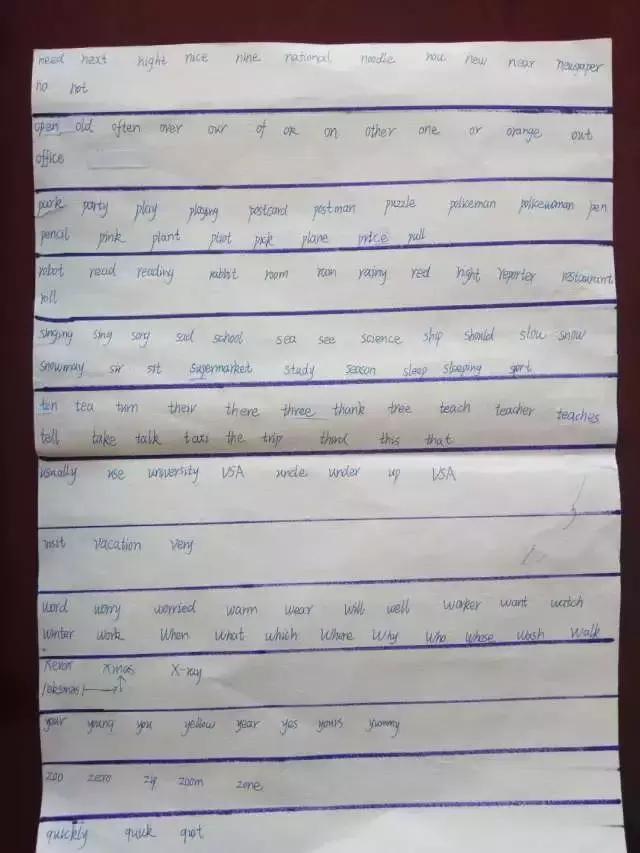 need next night nice nine national noodle now new near newspaper
no not
open old often over our of ok on other one or orange out
office
park party play playing postcard postman puzzle policeman policewoman pen
pencil pink plant pick plane price pull
robot read reading rabbit room rain rainy red right reporter restaurant
roll
singing sing song sad school sea see science ship should slow snow
sir sit supermarket study season sleep sleeping sport
ten tea turn their there three thank tree teach teacher teaches
tell take talk taxi the trip third this that
usually use university USA under up USA
visit vacation very
word worry worried warm wear will well worker want watch
winter work When What which Where Why Who whose Wash Walk
Xerox Xmas X-ray
your young you yellow year yes yours yummy
zoo zero zip zoom zone
quickly